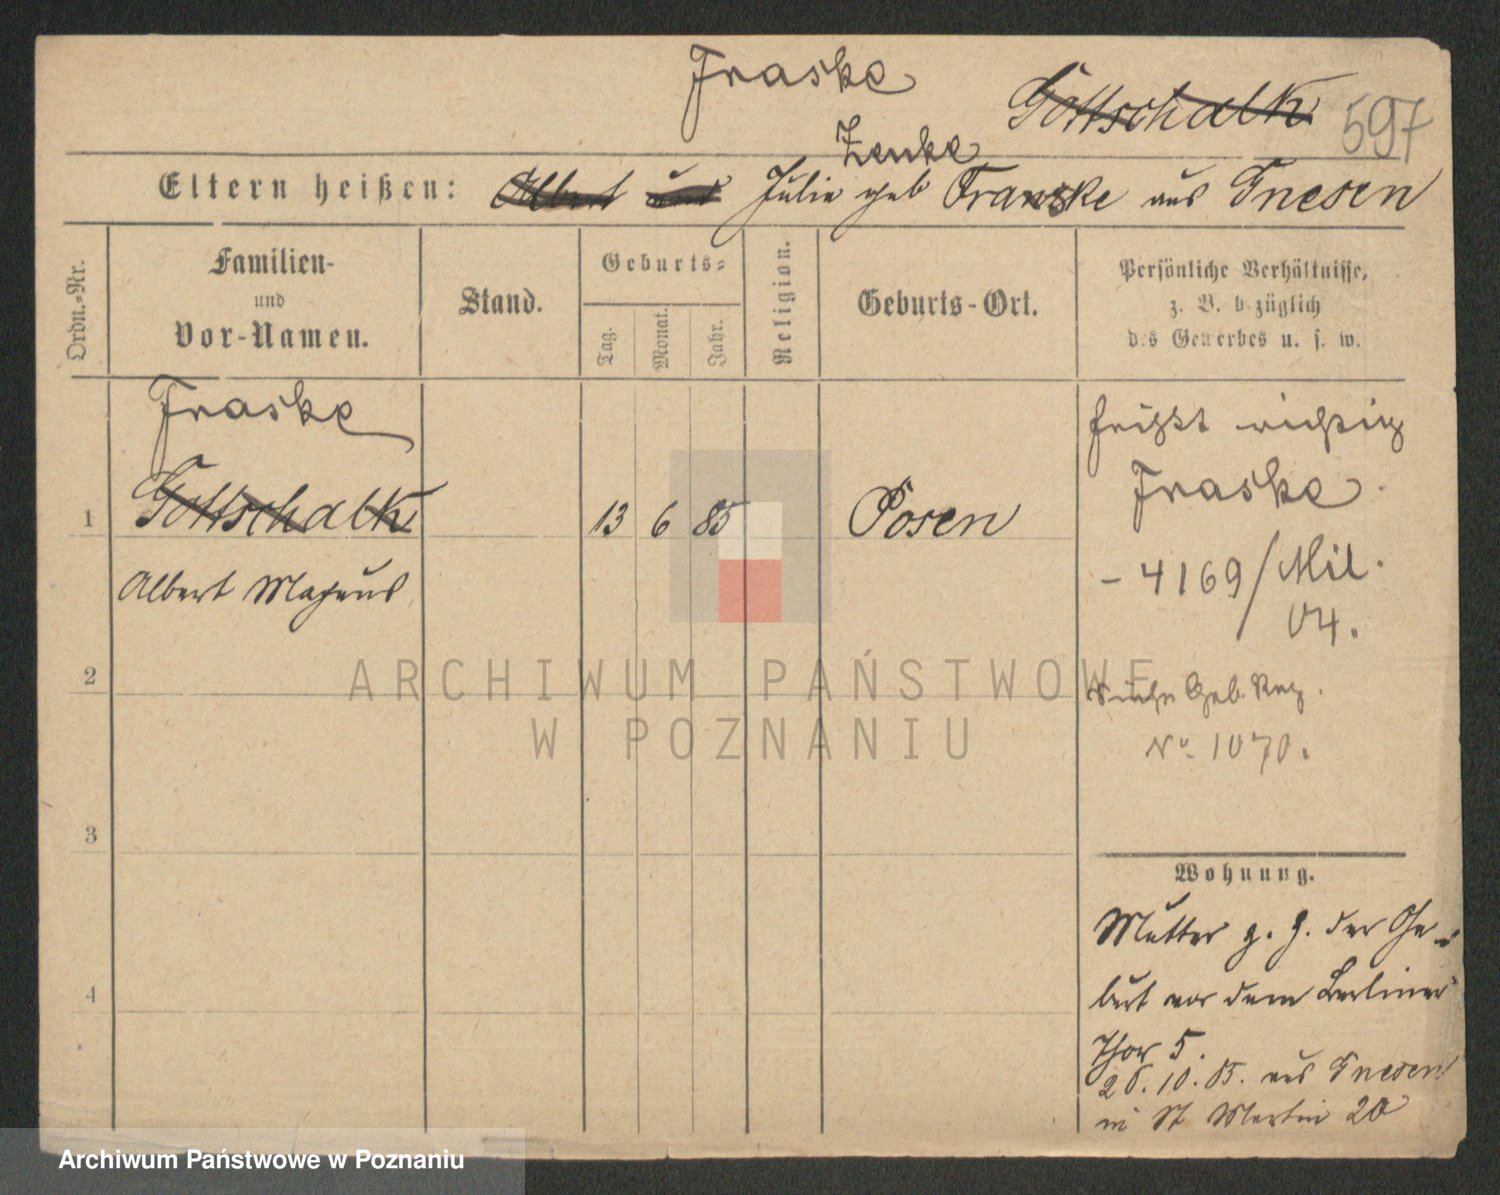 Fraske
Gottschalk 597
Zenke
Eltern heißen: Albert und Julie geb Franske aus Gnesen
Ordn.-Nr.
Familien-
und
Vor-Namen.
Stand.
Geburts-
Tag.
Monat.
Jahr.
Religion.
Geburts-Ort.
Persönliche Verhältnisse,
z. B. bezüglich
des Gewerbes u. s. w.
Fraske
heißt richtig
Fraske.
1 Gottschalk 13 6 85 Posen
Albert Magnus
- 4169/Mil.
04.
siehe Geb. Reg.
No. 1070.
2
3
4
Wohnung.
Mutter z. Z. der Ge-
burt vor dem Berliner
Thor 5.
26.10.85. aus Gnesen
in St Martin 20
ARCHIWUM PAŃSTWOWE
W POZNANIU
Archiwum Państwowe w Poznaniu